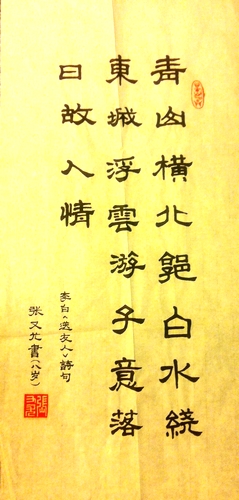 青山橫北郭白水繞
東城浮雲游子意落
日故人情
李白《送友人》詩句
张又允書(八岁)